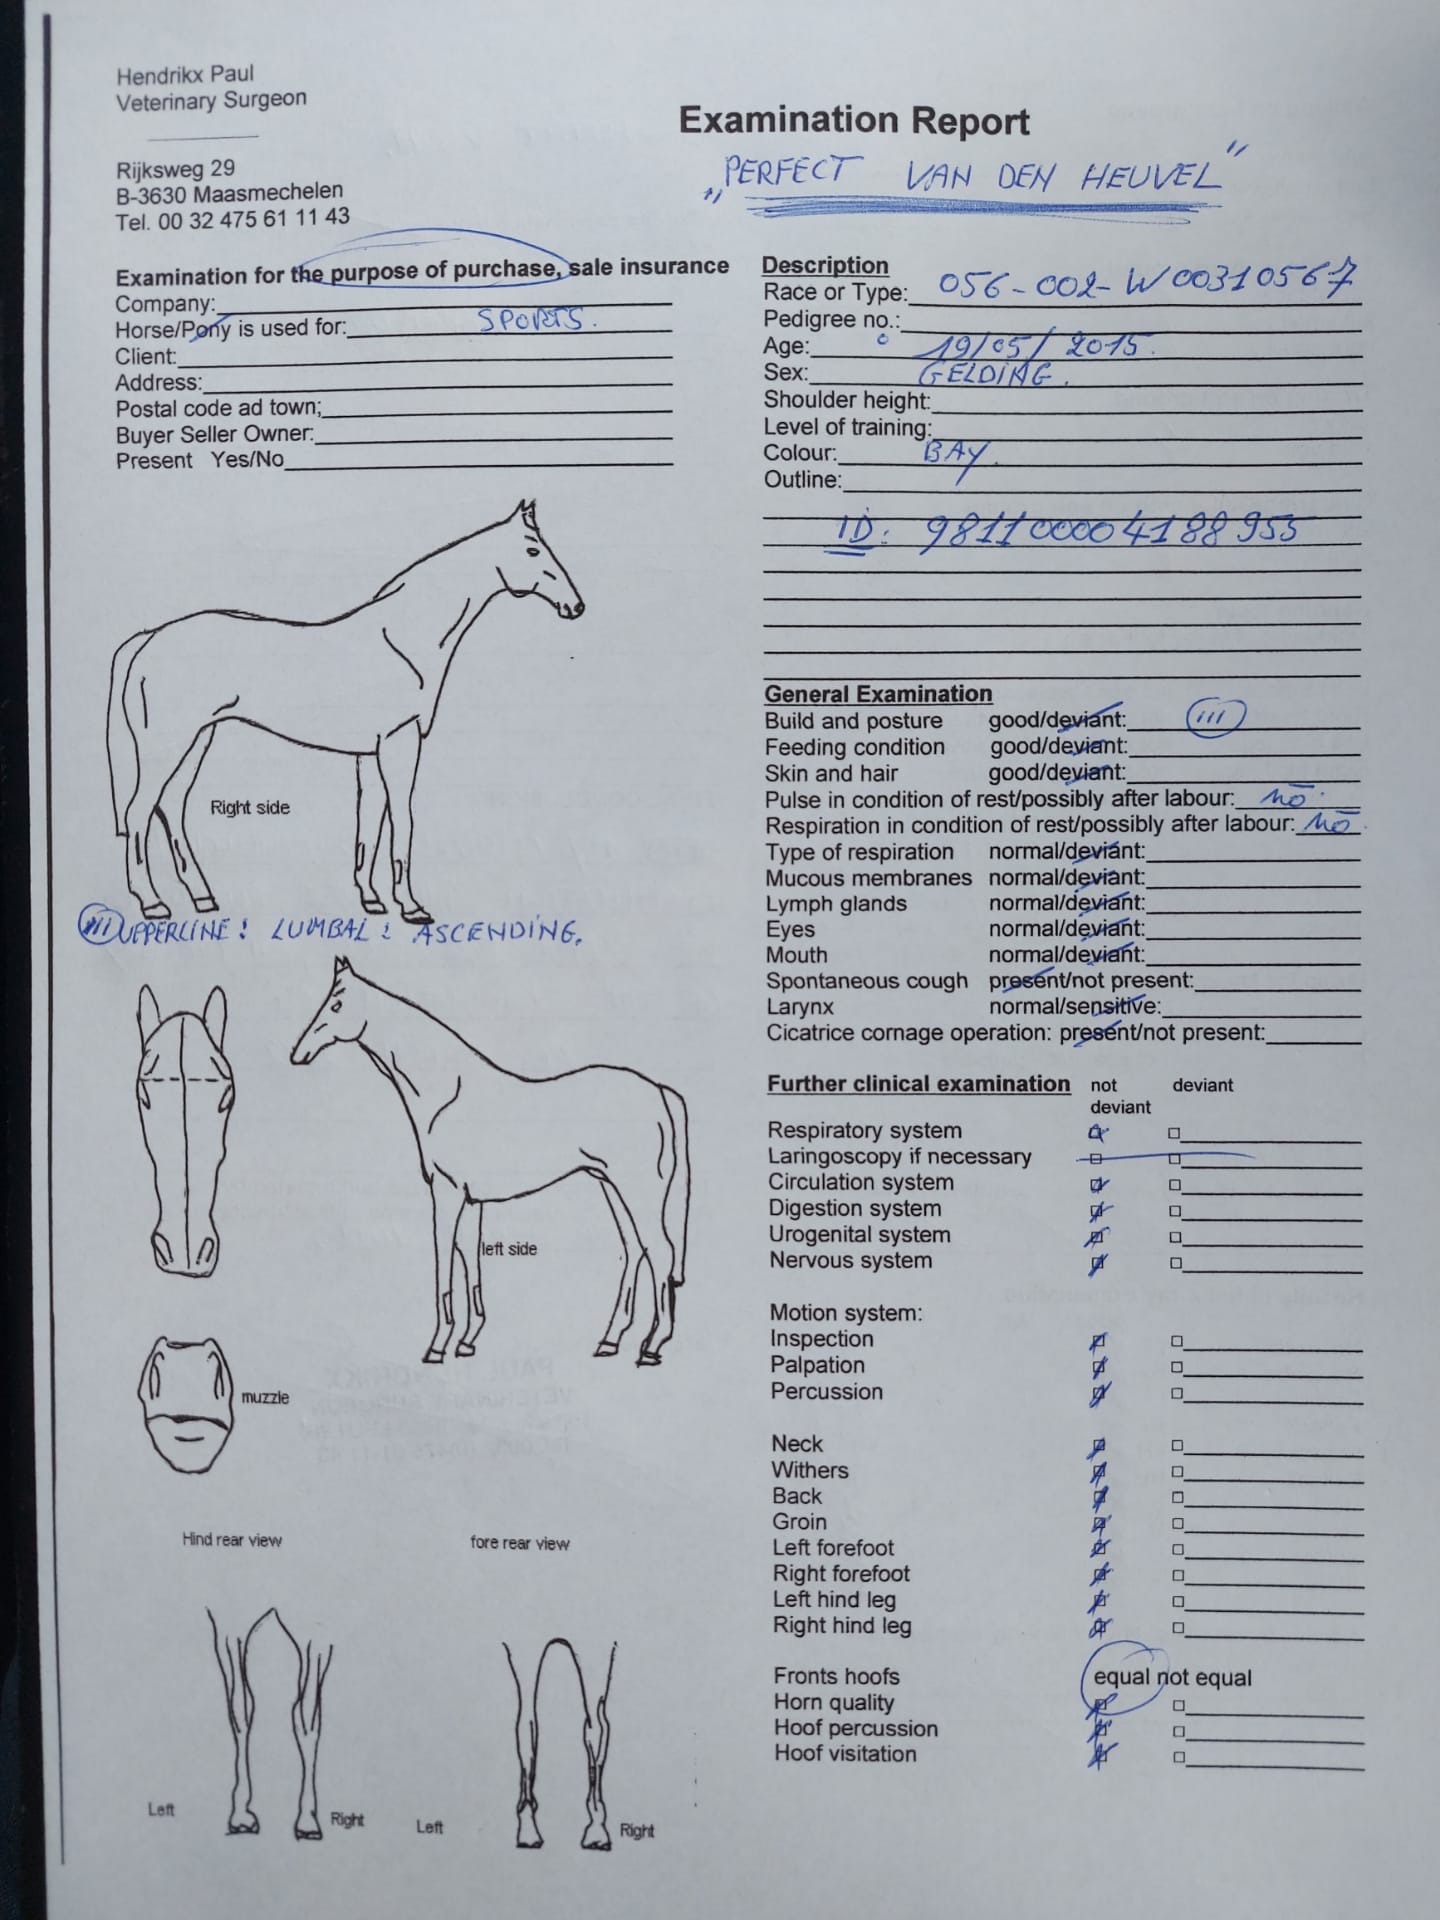 Hendrikx Paul
Veterinary Surgeon
Rijksweg 29
B-3630 Maasmechelen
Tel. 00 32 475 61 11 43
Examination Report
„PERFECT VAN DEN HEUVEL"
Examination for the purpose of purchase, sale insurance
Company:
Horse/Pony is used for: SPORTS.
Client:
Address:
Postal code ad town;
Buyer Seller Owner:
Present Yes/No
Right side
UPPERLINE: LUMBAL: ASCENDING.
left side
muzzle
Hind rear view
fore rear view
Left
Right
Left
Right
Description
Race or Type: 056-002-W00310567
Pedigree no.:
Age: ° 19/05/2015.
Sex: GELDING.
Shoulder height:
Level of training:
Colour: BAY.
Outline:
ID: 981100004188955
General Examination
Build and posture good/deviant: (!!!)
Feeding condition good/deviant:
Skin and hair good/deviant:
Pulse in condition of rest/possibly after labour:
Respiration in condition of rest/possibly after labour:
Type of respiration normal/deviant:
Mucous membranes normal/deviant:
Lymph glands normal/deviant:
Eyes normal/deviant:
Mouth normal/deviant:
Spontaneous cough present/not present:
Larynx normal/sensitive:
Cicatrice cornage operation: present/not present:
Further clinical examination not deviant deviant
Respiratory system
Laringoscopy if necessary
Circulation system
Digestion system
Urogenital system
Nervous system
Motion system:
Inspection
Palpation
Percussion
Neck
Withers
Back
Groin
Left forefoot
Right forefoot
Left hind leg
Right hind leg
Fronts hoofs equal not equal
Horn quality
Hoof percussion
Hoof visitation